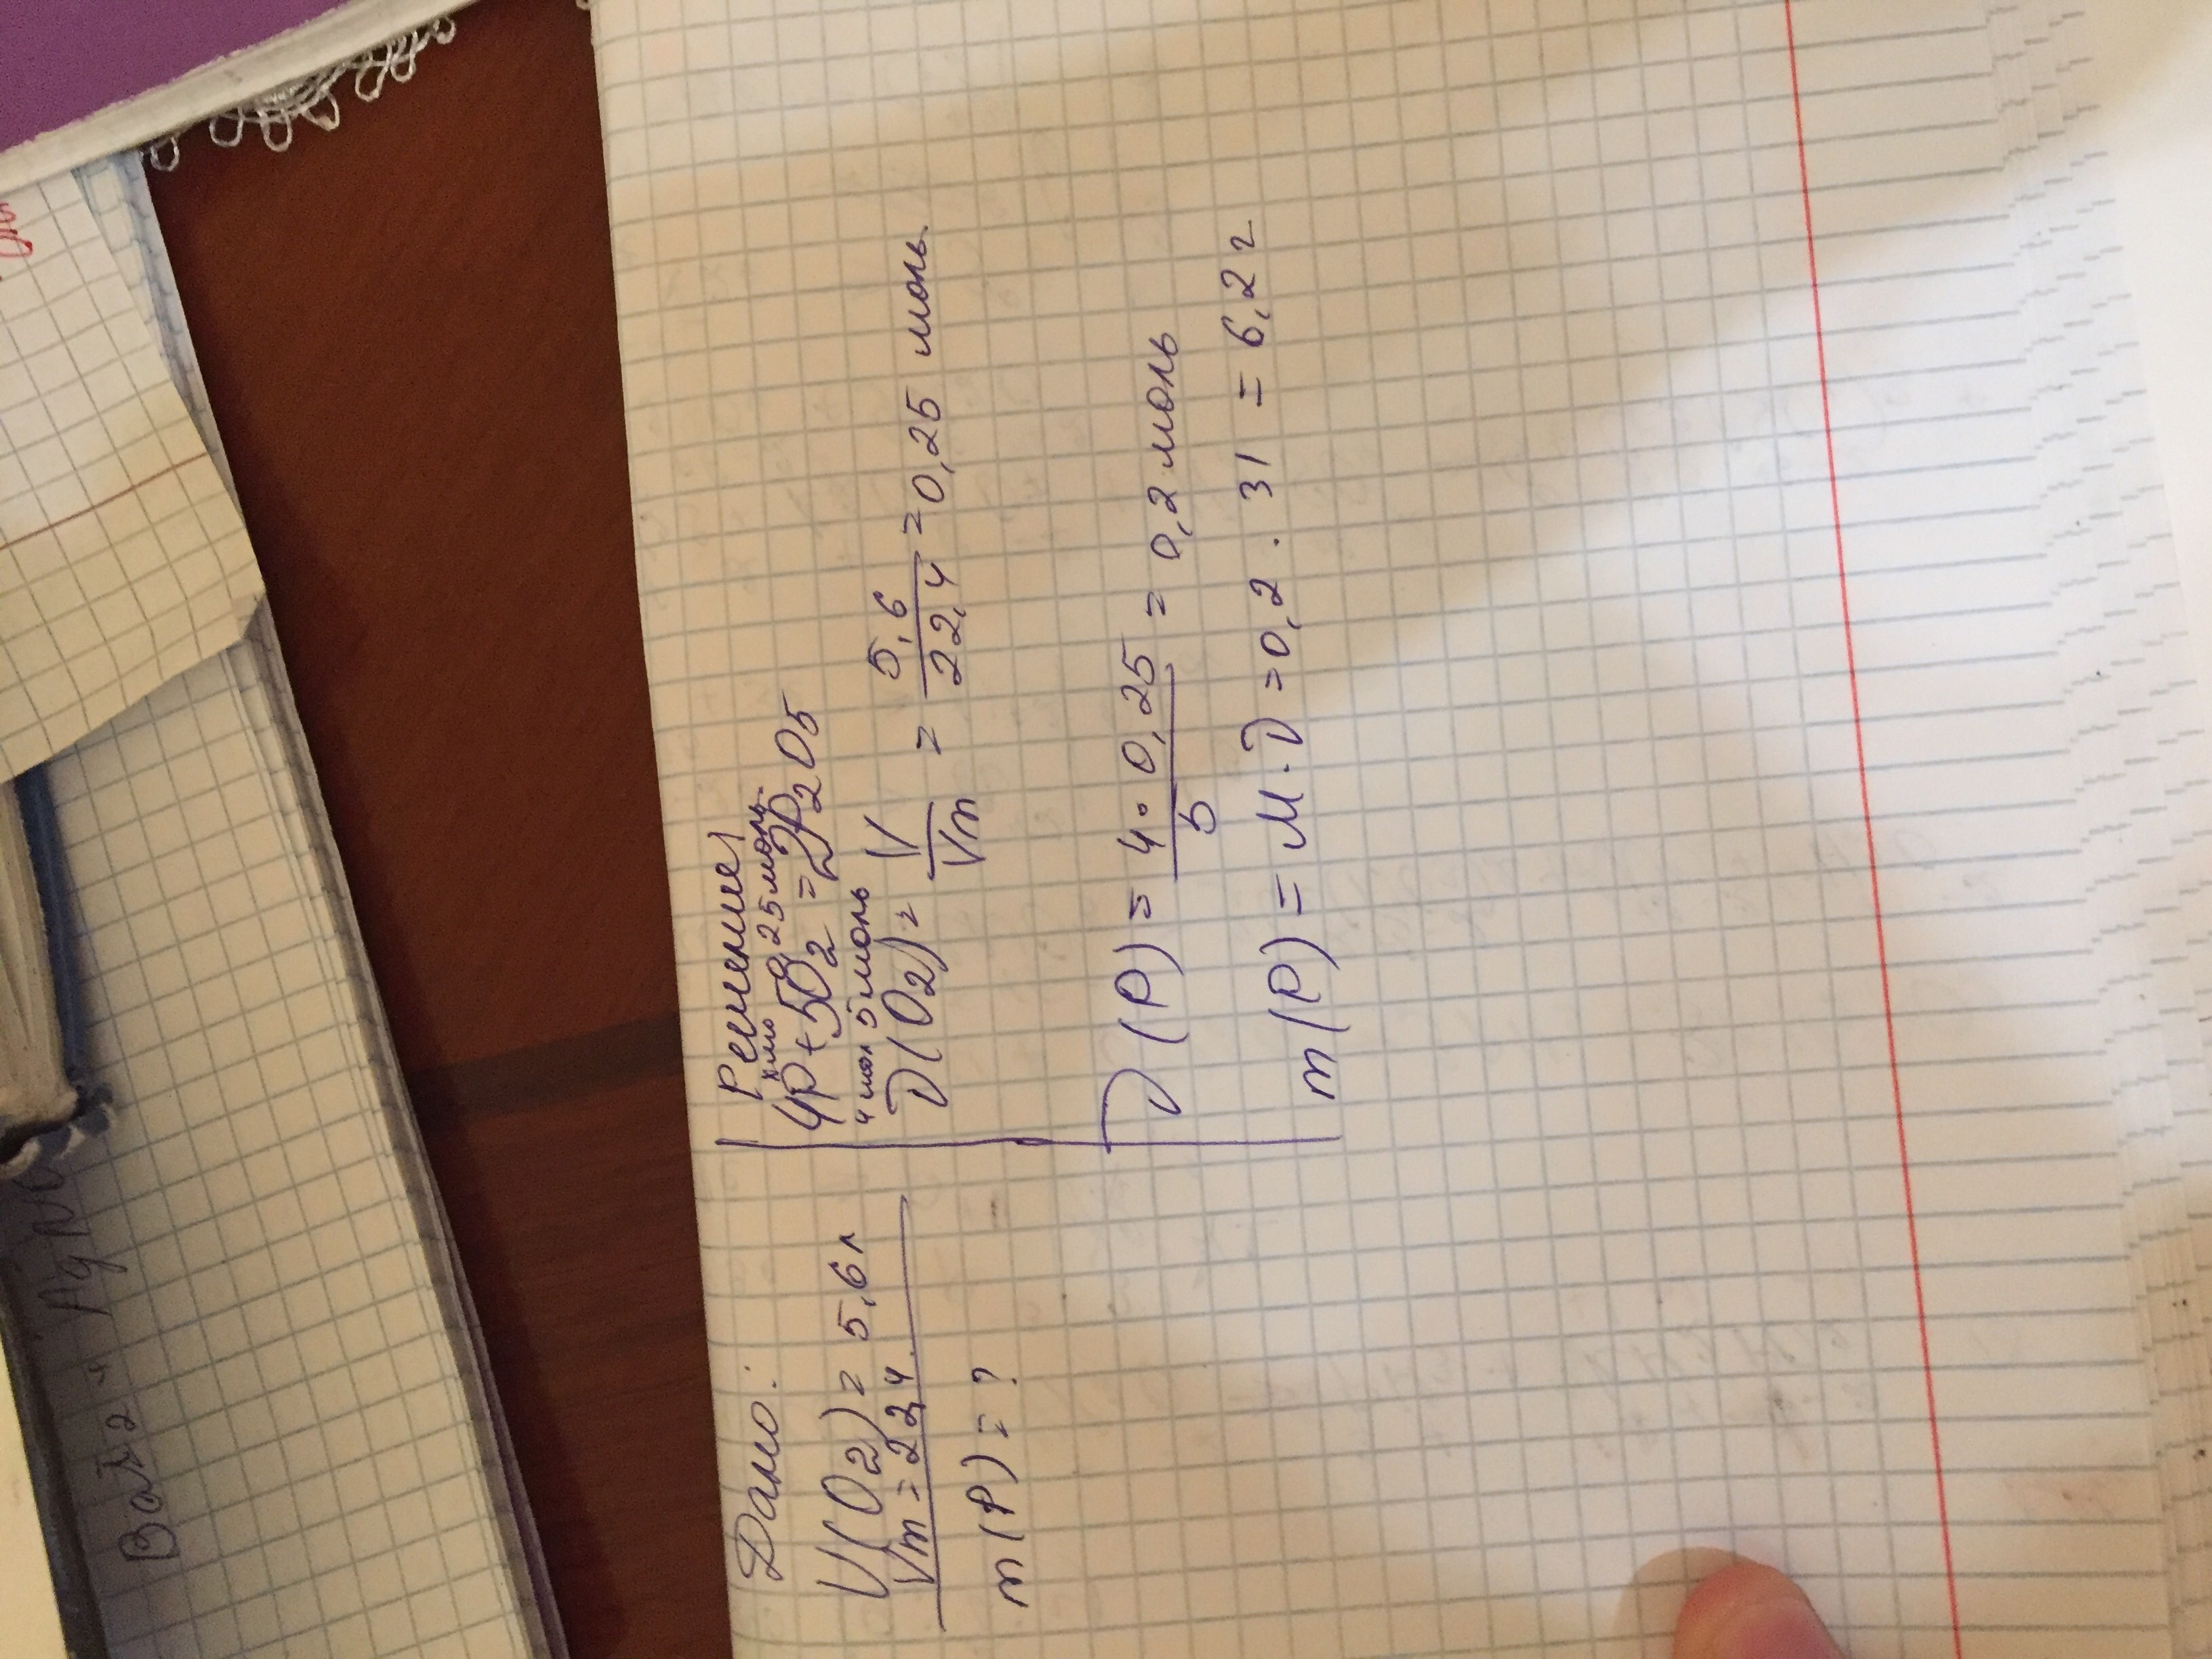 Дано:
V(O2) = 5,6 л
Vm = 22,4
m(P) = ?
Решение
0,25 моль
4P + 5O2 = 2P2O5
4 мол 5 моль
ν(O2) = V/Vm = 5,6/22,4 = 0,25 моль
ν(P) = 4 · 0,25/5 = 0,2 моль
m(P) = M · ν = 0,2 · 31 = 6,2 г